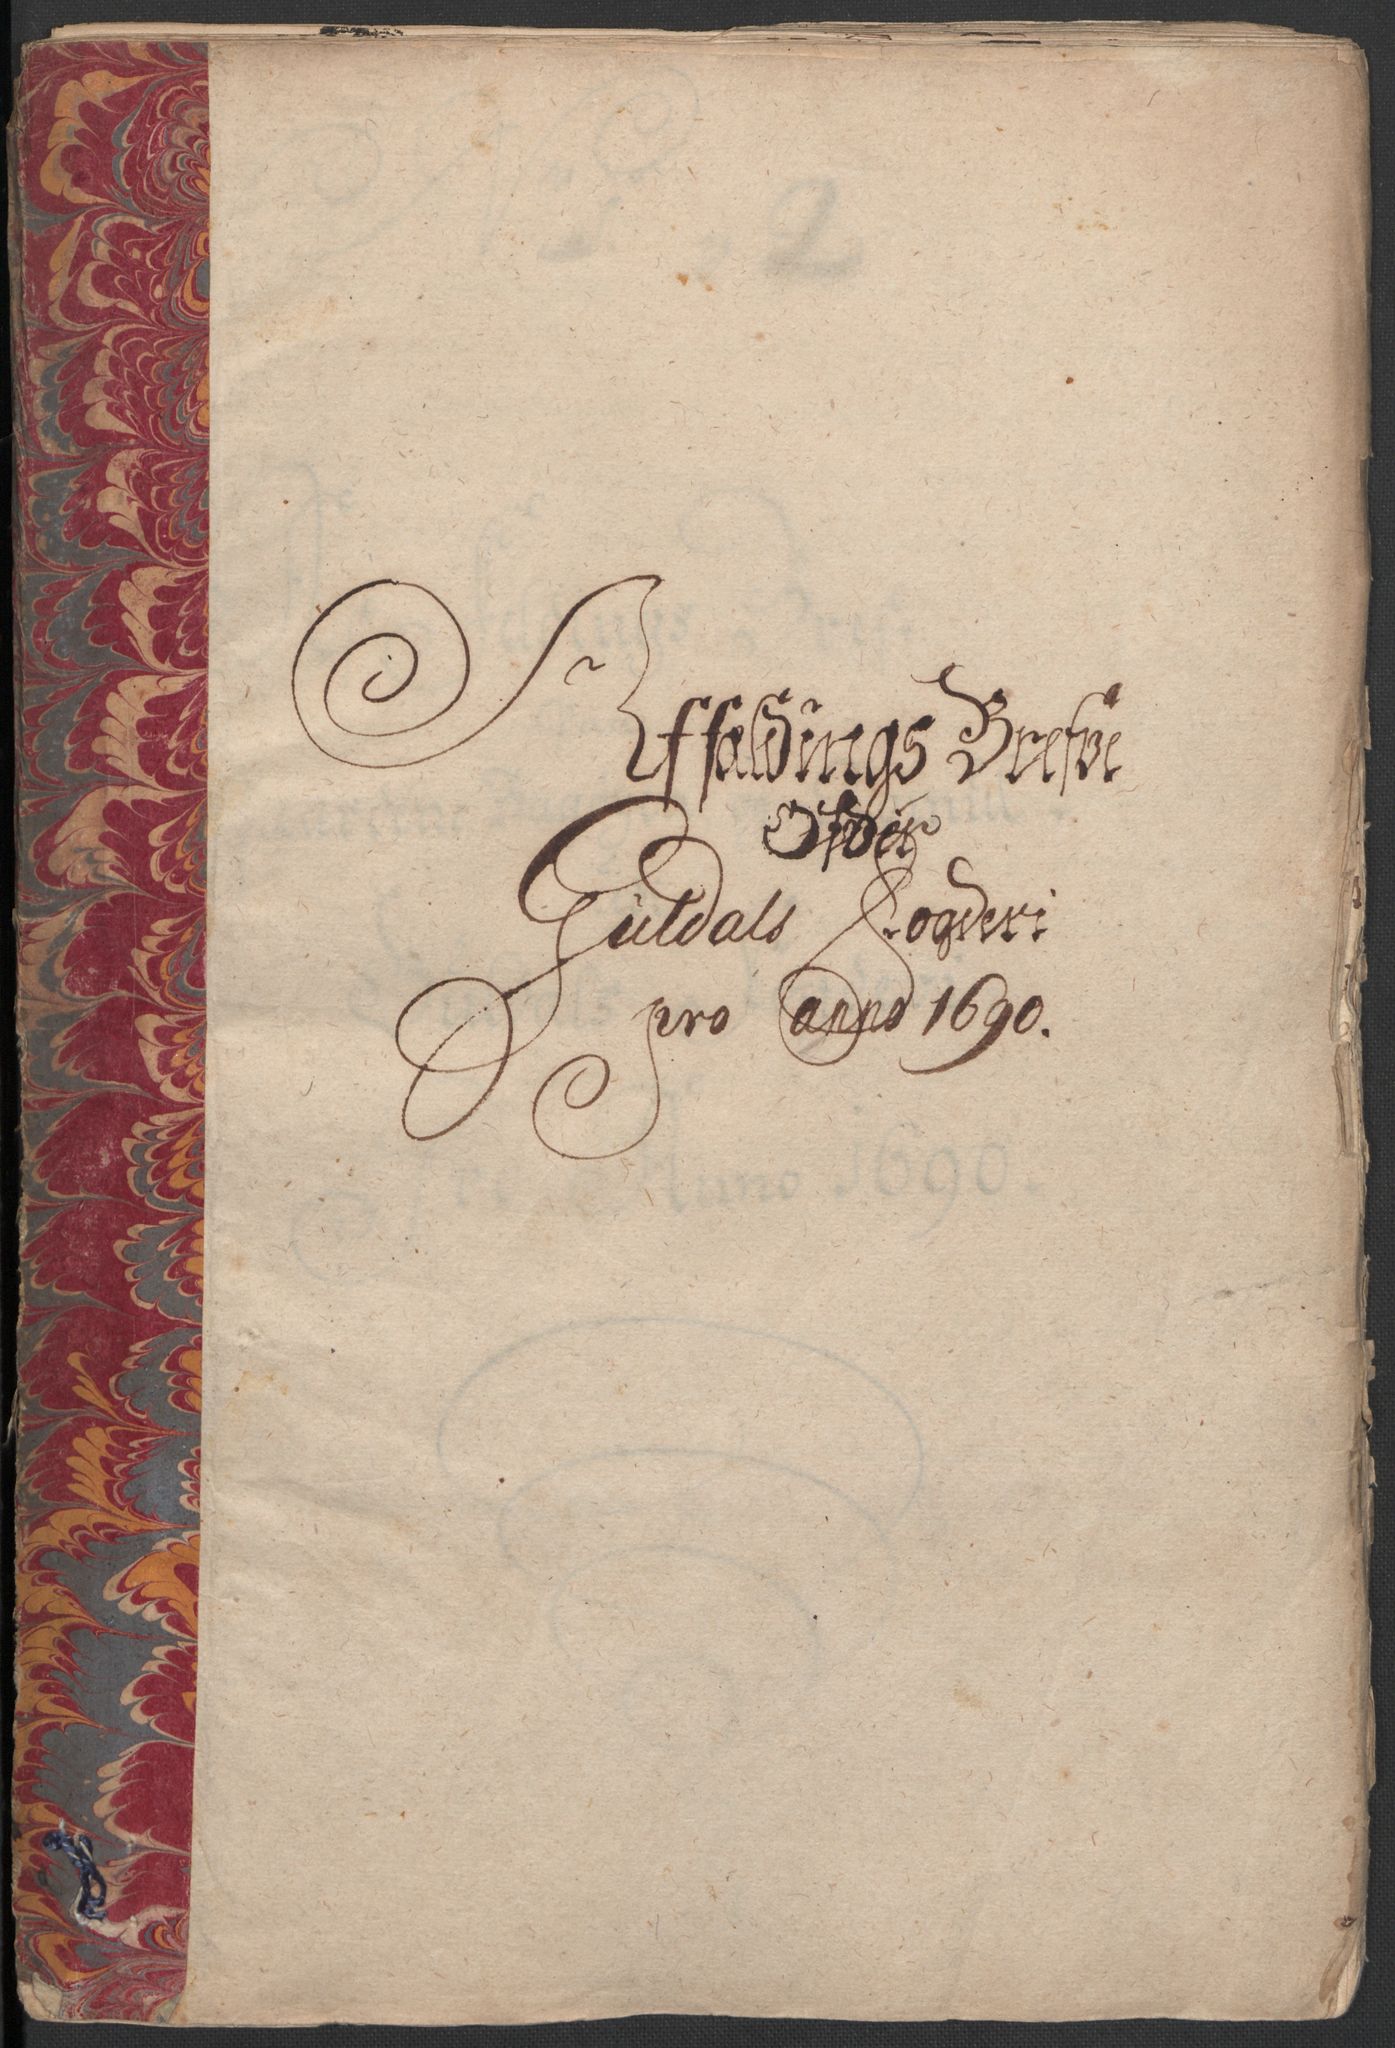 Affældings Brefve
Ofver
Guldals Fogderi
pro anno 1690.